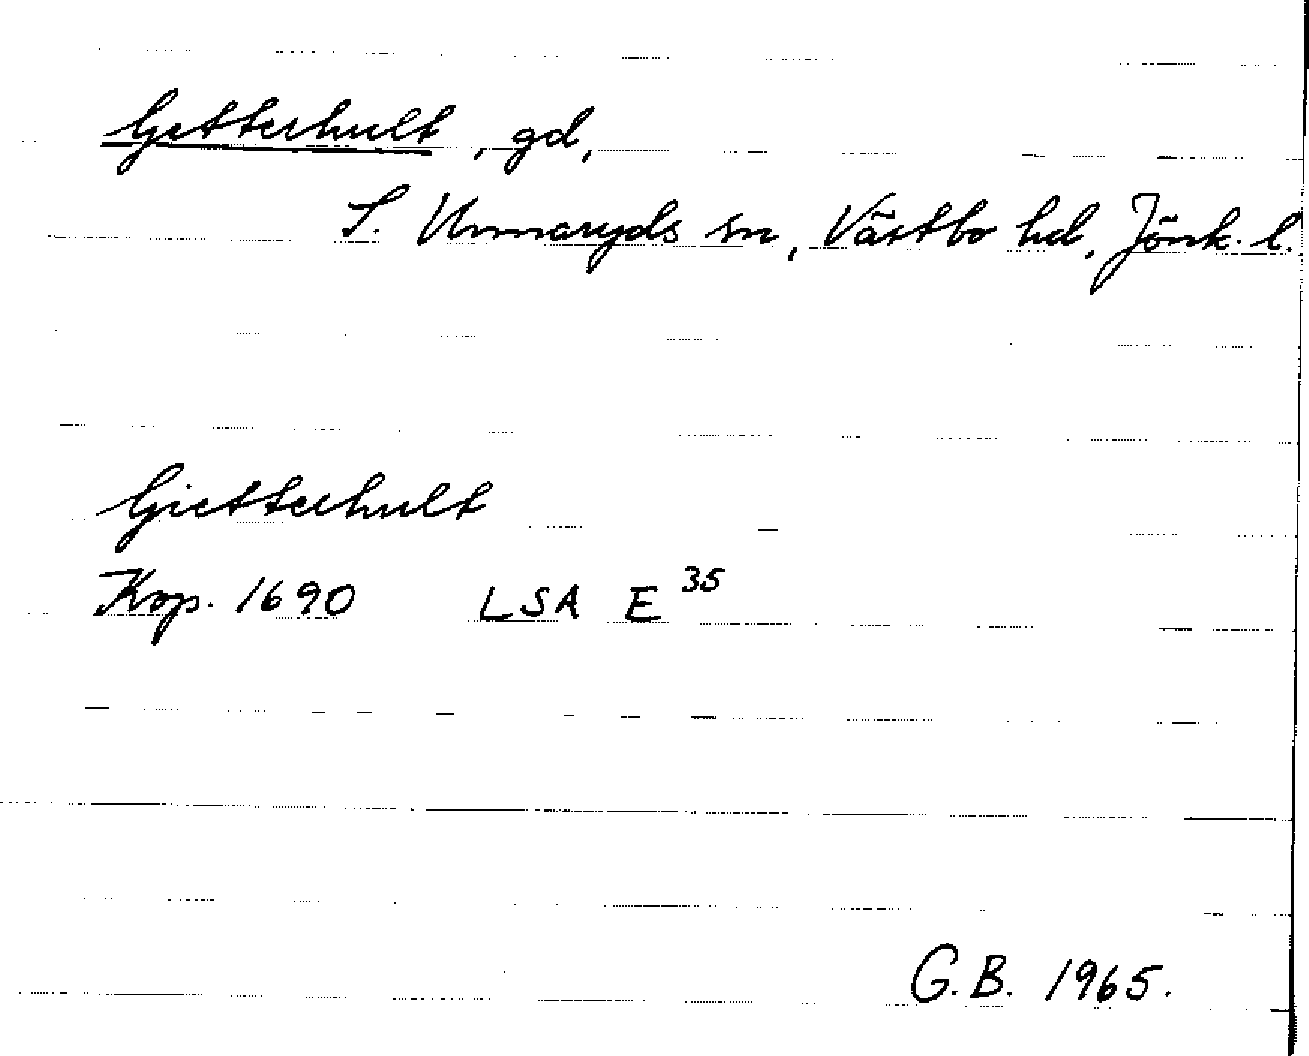 Getterhult, gd,
S. Unnaryds sn, Västbo hd, Jönk. l.
Gietterhult
Kop. 1690 LSA E 35
G.B. 1965.